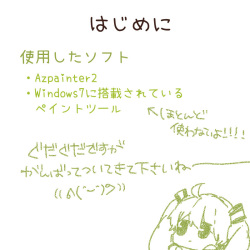 はじめに
使用したソフト
・Azpainter2
・Windows7に搭載されている
ペイントツール
↖(ほとんど
使わないよ!!!!
ぐだぐだですが
がんばってついてきて下さいね